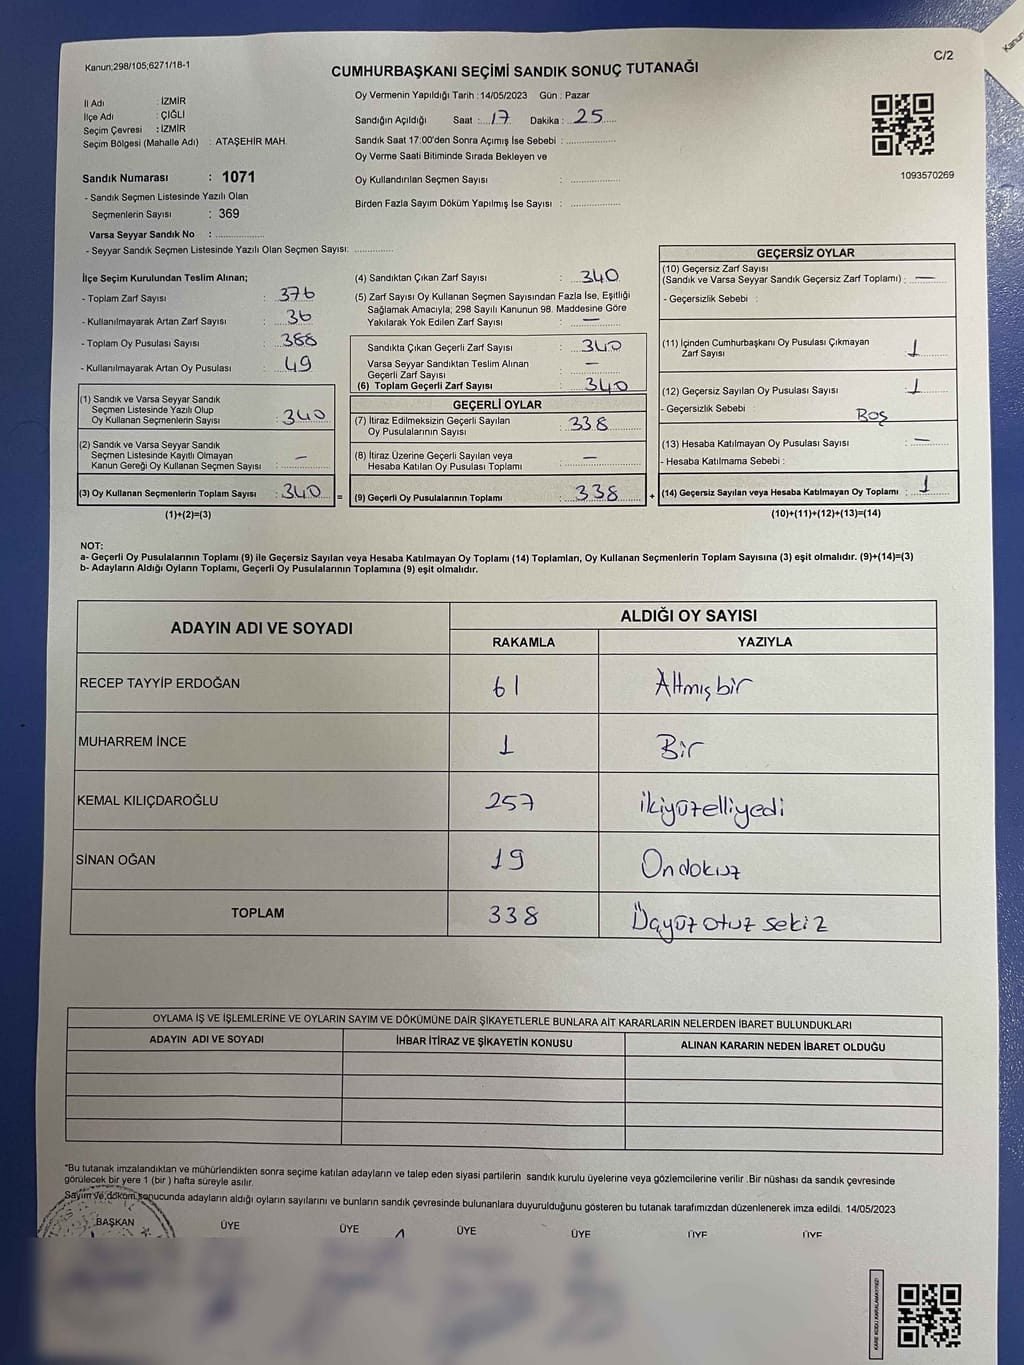 Kanun;298/105;6271/18-1
CUMHURBAŞKANI SEÇİMİ SANDIK SONUÇ TUTANAĞI
C/2
Kanun
İl Adı : İZMİR
İlçe Adı : ÇİĞLİ
Seçim Çevresi : İZMİR
Seçim Bölgesi (Mahalle Adı) : ATAŞEHİR MAH.
Sandık Numarası : 1071
- Sandık Seçmen Listesinde Yazılı Olan
Seçmenlerin Sayısı : 369
Varsa Seyyar Sandık No : ................
- Seyyar Sandık Seçmen Listesinde Yazılı Olan Seçmen Sayısı: .............
Oy Vermenin Yapıldığı Tarih : 14/05/2023 Gün : Pazar
Sandığın Açıldığı Saat : 17 Dakika : 25
Sandık Saat 17:00'den Sonra Açımış İse Sebebi : ................
Oy Verme Saati Bitiminde Sırada Bekleyen ve
Oy Kullandırılan Seçmen Sayısı : ................
Birden Fazla Sayım Döküm Yapılmış İse Sayısı : ................
1093570269
İlçe Seçim Kurulundan Teslim Alınan;
- Toplam Zarf Sayısı : 376
- Kullanılmayarak Artan Zarf Sayısı : 36
- Toplam Oy Pusulası Sayısı : 388
- Kullanılmayarak Artan Oy Pusulası : 49
(1) Sandık ve Varsa Seyyar Sandık
Seçmen Listesinde Yazılı Olup
Oy Kullanan Seçmenlerin Sayısı : 340
(2) Sandık ve Varsa Seyyar Sandık
Seçmen Listesinde Kayıtlı Olmayan
Kanun Gereği Oy Kullanan Seçmen Sayısı : —
(3) Oy Kullanan Seçmenlerin Toplam Sayısı : 340 =
(1)+(2)=(3)
(4) Sandıktan Çıkan Zarf Sayısı : 340
(5) Zarf Sayısı Oy Kullanan Seçmen Sayısından Fazla İse, Eşitliği
Sağlamak Amacıyla; 298 Sayılı Kanunun 98. Maddesine Göre
Yakılarak Yok Edilen Zarf Sayısı : —
Sandıkta Çıkan Geçerli Zarf Sayısı : 340
Varsa Seyyar Sandıktan Teslim Alınan
Geçerli Zarf Sayısı : —
(6) Toplam Geçerli Zarf Sayısı : 340
GEÇERLİ OYLAR
(7) İtiraz Edilmeksizin Geçerli Sayılan
Oy Pusulalarının Sayısı : 338
(8) İtiraz Üzerine Geçerli Sayılan veya
Hesaba Katılan Oy Pusulası Toplamı : —
(9) Geçerli Oy Pusulalarının Toplamı : 338 +
GEÇERSİZ OYLAR
(10) Geçersiz Zarf Sayısı
(Sandık ve Varsa Seyyar Sandık Geçersiz Zarf Toplamı) : —
- Geçersizlik Sebebi :
(11) İçinden Cumhurbaşkanı Oy Pusulası Çıkmayan
Zarf Sayısı 1
(12) Geçersiz Sayılan Oy Pusulası Sayısı : 1
- Geçersizlik Sebebi : Boş
(13) Hesaba Katılmayan Oy Pusulası Sayısı : —
- Hesaba Katılmama Sebebi :
(14) Geçersiz Sayılan veya Hesaba Katılmayan Oy Toplamı : 1
(10)+(11)+(12)+(13)=(14)
NOT:
a- Geçerli Oy Pusulalarının Toplamı (9) ile Geçersiz Sayılan veya Hesaba Katılmayan Oy Toplamı (14) Toplamları, Oy Kullanan Seçmenlerin Toplam Sayısına (3) eşit olmalıdır. (9)+(14)=(3)
b- Adayların Aldığı Oyların Toplamı, Geçerli Oy Pusulalarının Toplamına (9) eşit olmalıdır.
ADAYIN ADI VE SOYADI
ALDIĞI OY SAYISI
RAKAMLA YAZIYLA
RECEP TAYYİP ERDOĞAN 61 Altmışbir
MUHARREM İNCE 1 Bir
KEMAL KILIÇDAROĞLU 257 ikiyüzelliyedi
SİNAN OĞAN 19 Ondokuz
TOPLAM 338 Üçyüz otuz sekiz
OYLAMA İŞ VE İŞLEMLERİNE VE OYLARIN SAYIM VE DÖKÜMÜNE DAİR ŞİKAYETLERLE BUNLARA AİT KARARLARIN NELERDEN İBARET BULUNDUKLARI
ADAYIN ADI VE SOYADI İHBAR İTİRAZ VE ŞİKAYETİN KONUSU ALINAN KARARIN NEDEN İBARET OLDUĞU
*Bu tutanak imzalandıktan ve mühürlendikten sonra seçime katılan adayların ve talep eden siyasi partilerin sandık kurulu üyelerine veya gözlemcilerine verilir .Bir nüshası da sandık çevresinde
görülecek bir yere 1 (bir ) hafta süreyle asılır.
Sayım ve döküm sonucunda adayların aldığı oyların sayılarını ve bunların sandık çevresinde bulunanlara duyurulduğunu gösteren bu tutanak tarafımızdan düzenlenerek imza edildi. 14/05/2023
BAŞKAN ÜYE ÜYE ÜYE ÜYE ÜYE ÜYE